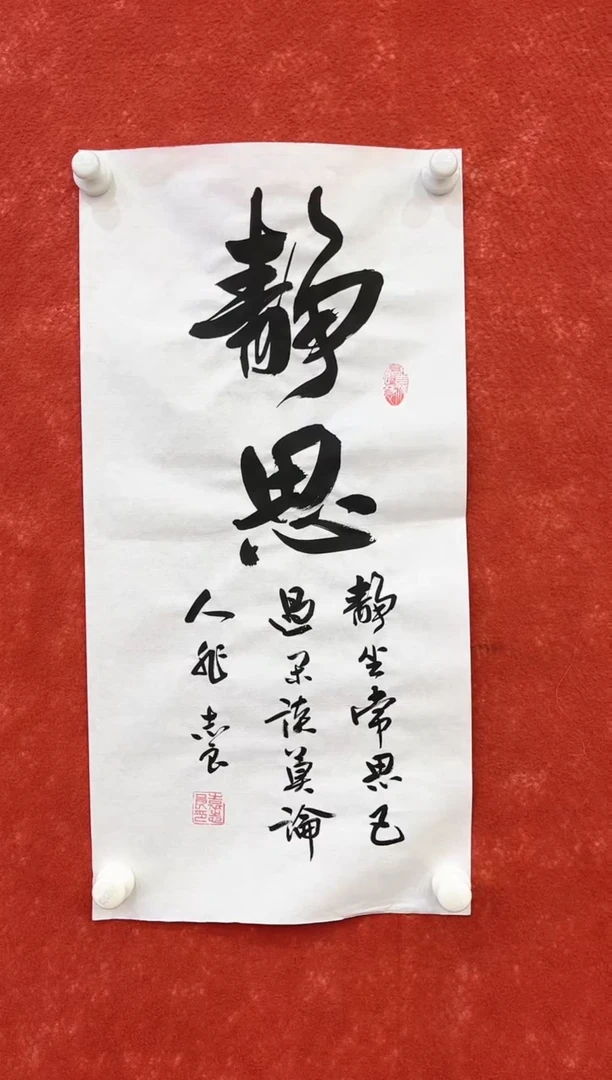 静思
静坐常思己
过闲谈莫论
人非 志良